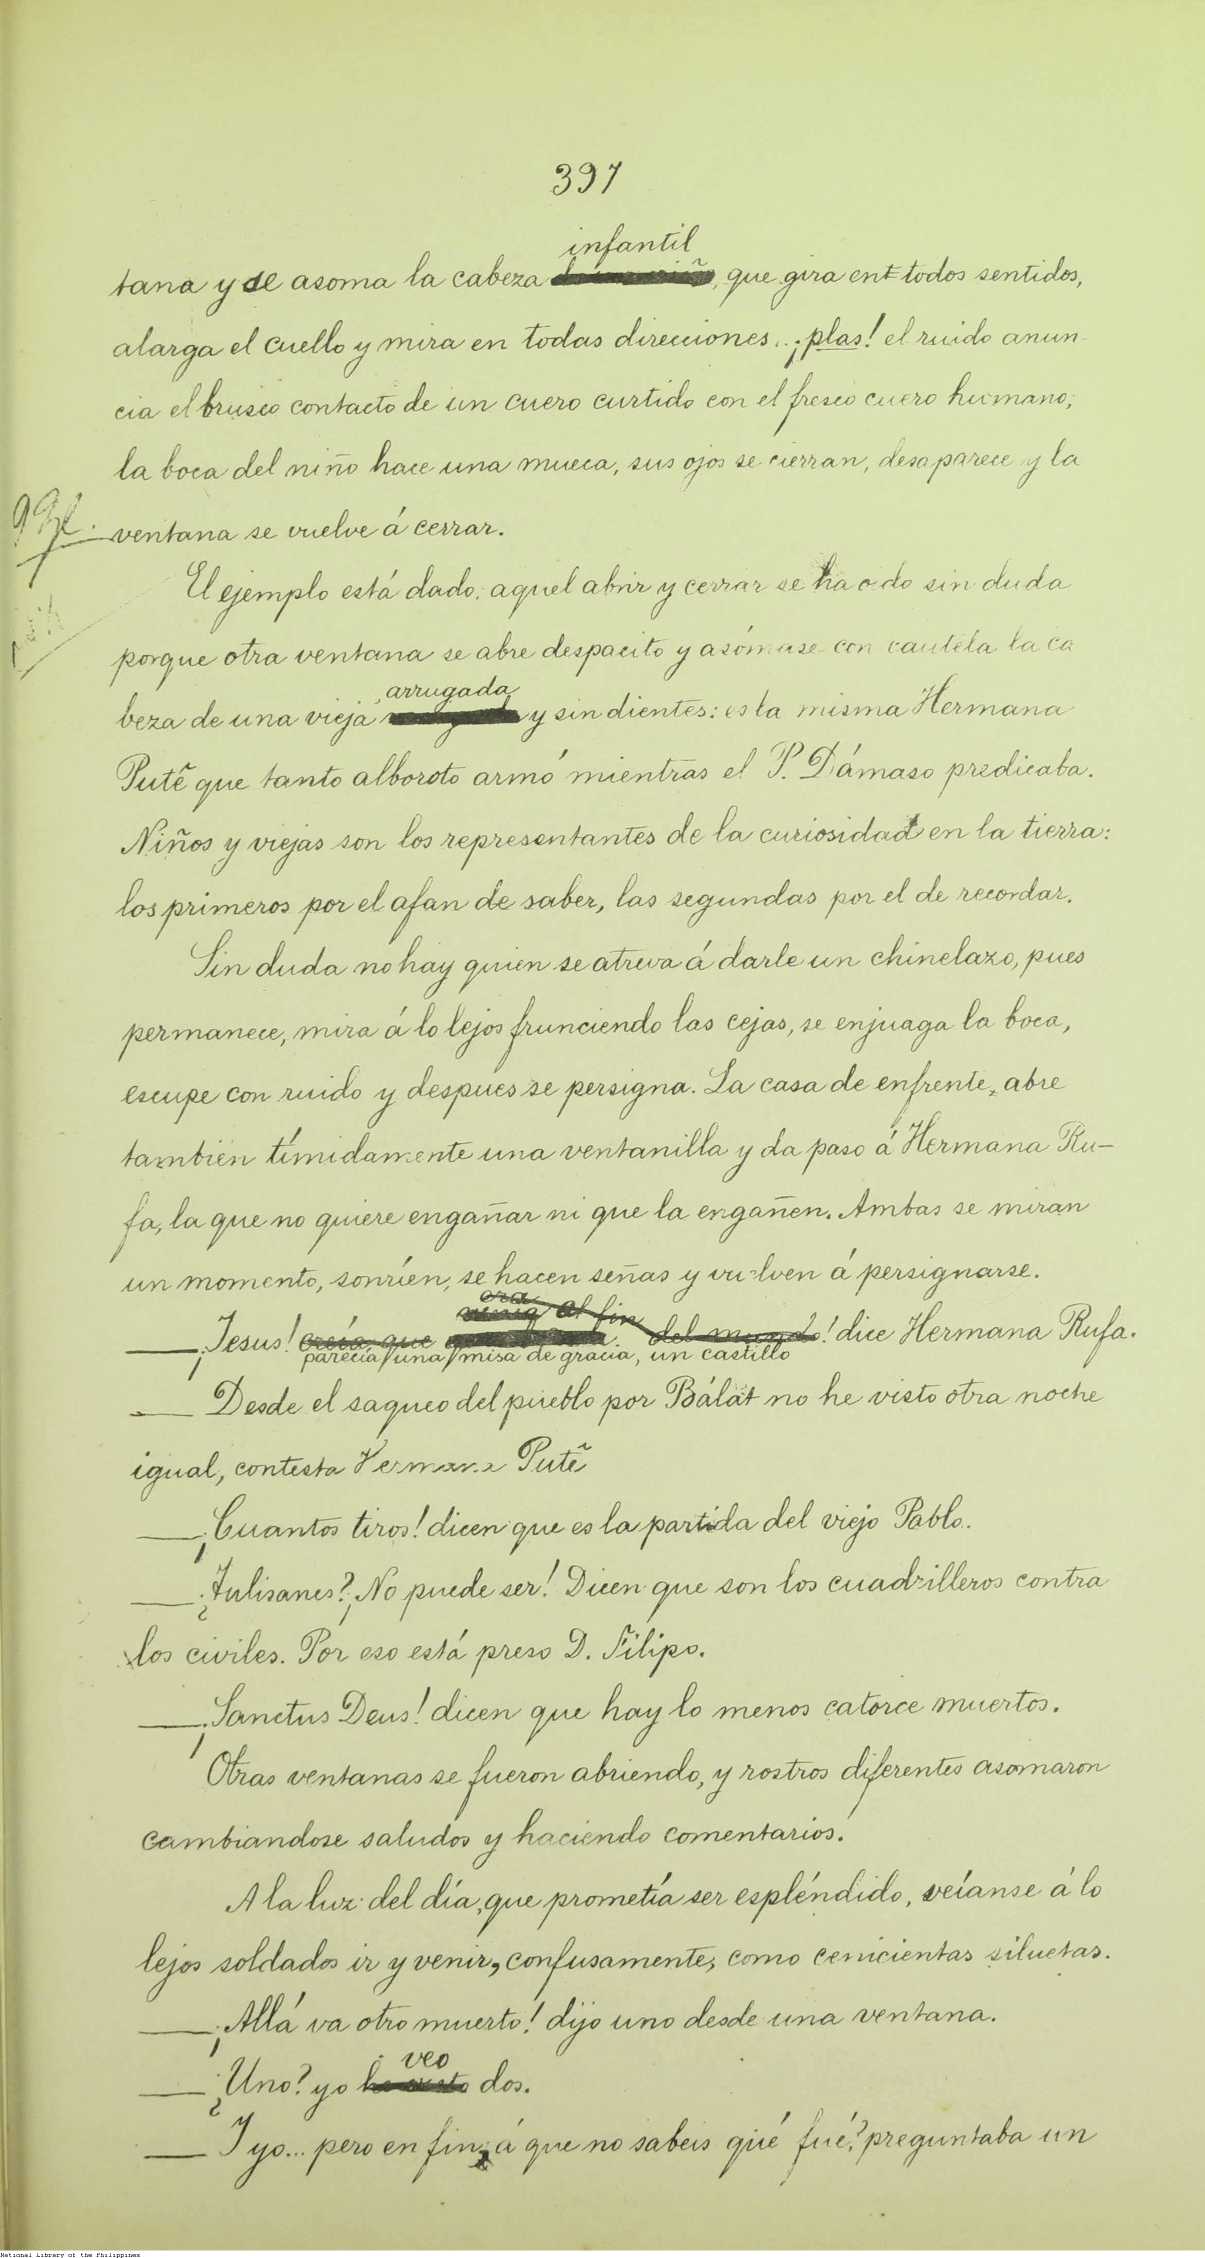 397
infantil
tana y se asoma la cabeza, que gira en todos sentidos,
alarga el cuello y mira en todas direcciones... ¡plas! el ruido anun-
cia el brusco contacto de un cuero curtido con el fresco cuero humano;
la boca del niño hace una mueca, sus ojos se cierran, desaparece y la
ventana se vuelve á cerrar.
El ejemplo está dado: aquel abrir y cerrar se ha oido sin duda
porque otra ventana se abre despacito y asómase con cautela la ca
arrugada
beza de una vieja y sin dientes: es la misma Hermana
Putẽ que tanto alboroto armó mientras el P. Dámaso predicaba.
Niños y viejas son los representantes de la curiosidad en la tierra:
los primeros por el afan de saber, las segundas por el de recordar.
Sin duda no hay quien se atreva á darle un chinelazo, pues
permanece, mira á lo lejos frunciendo las cejas, se enjuaga la boca,
escupe con ruido y despues se persigna. La casa de enfrente, abre
también tímidamente una ventanilla y da paso á Hermana Ru-
fa, la que no quiere engañar ni que la engañen. Ambas se miran
un momento, sonríen, se hacen señas y vuelven á persignarse.
ora
venía al fin
—¡Jesus! creía que del mundo! dice Hermana Rufa.
parecía una misa de gracia, un castillo
— Desde el saqueo del pueblo por Bálat no he visto otra noche
igual, contesta Hermana Putẽ
—¡Cuantos tiros! dicen que es la partida del viejo Pablo.
—¿Tulisanes? ¡No puede ser! Dicen que son los cuadrilleros contra
los civiles. Por eso está preso D. Filipo.
—¡Sanctus Deus! dicen que hay lo menos catorce muertos.
Otras ventanas se fueron abriendo, y rostros diferentes asomaron
cambiandose saludos y haciendo comentarios.
A la luz del día, que prometía ser espléndido, veíanse á lo
lejos soldados ir y venir, confusamente, como cenicientas siluetas.
—¡Allá va otro muerto! dijo uno desde una ventana.
veo
—¿Uno? yo he visto dos.
— Y yo... pero en fin, á que no sabeis qué fué? preguntaba un
National Library of the Philippines